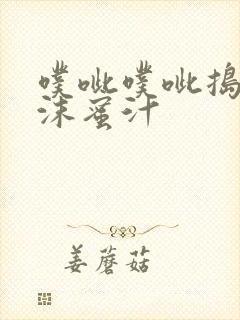 噗呲噗呲搗
沫蜜汁
姜蘑菇